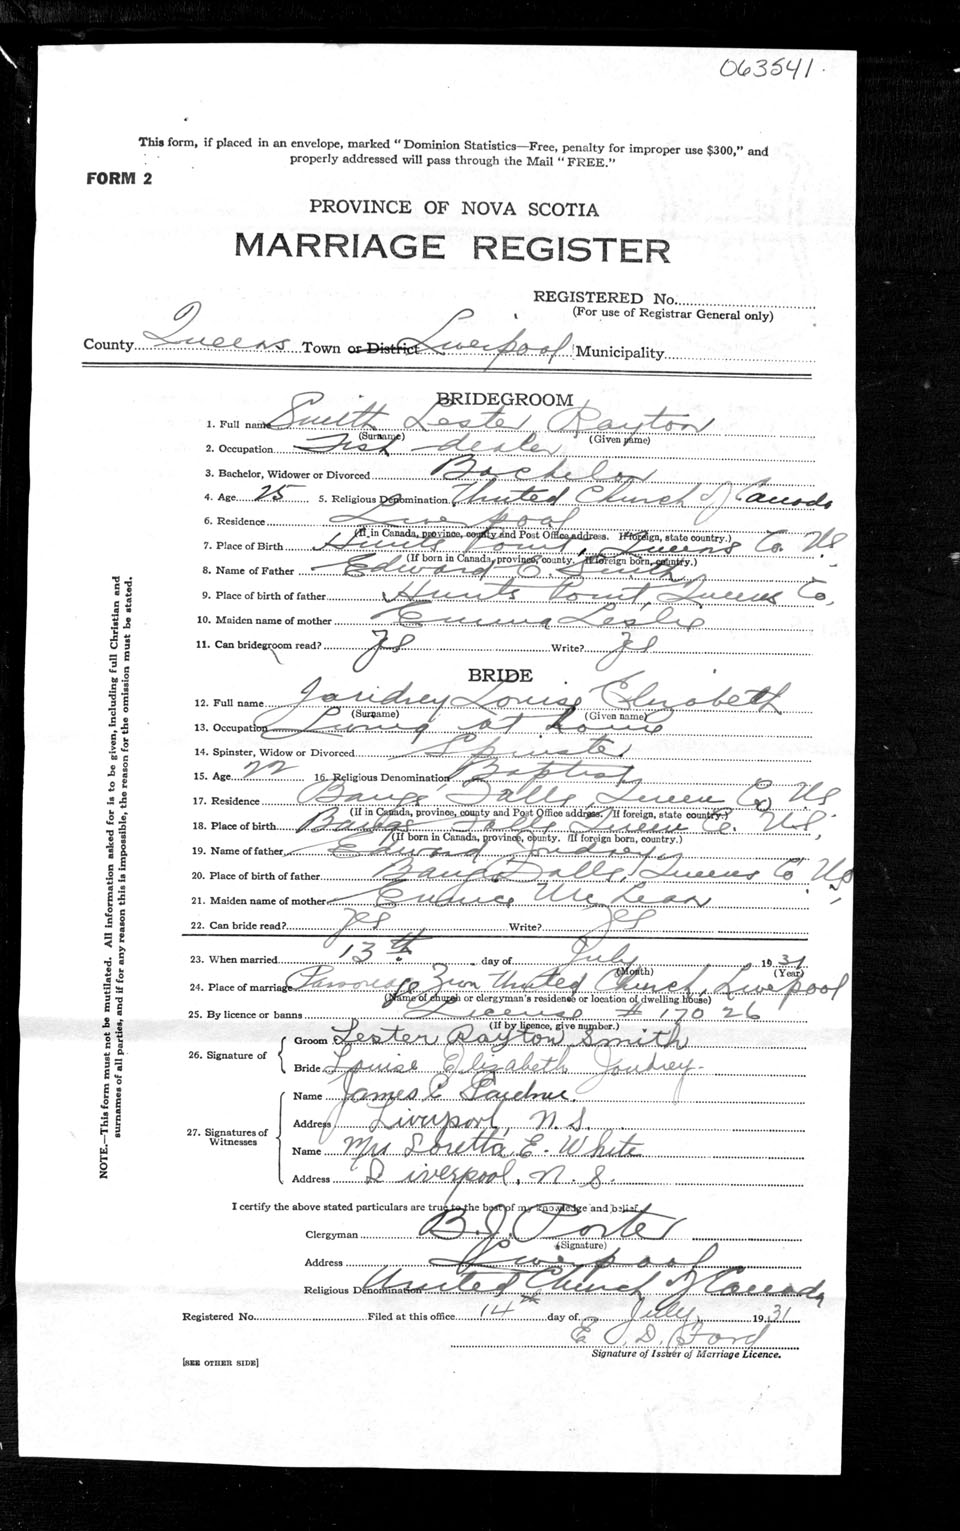 063541
This form, if placed in an envelope, marked "Dominion Statistics—Free, penalty for improper use $300," and
properly addressed will pass through the Mail "FREE."
FORM 2
PROVINCE OF NOVA SCOTIA
MARRIAGE REGISTER
REGISTERED No.
(For use of Registrar General only)
County Queens Town or District Liverpool Municipality
BRIDEGROOM
1. Full name Smith Lester Rayton
(Surname) (Given name)
2. Occupation Fish dealer
3. Bachelor, Widower or Divorced Bachelor
4. Age 25 5. Religious Denomination United Church of Canada
6. Residence Liverpool
(If in Canada, province, county and Post Office address. If foreign, state country.)
7. Place of Birth Hunts Point, Queens Co. NS
(If born in Canada, province, county. If foreign born, country.)
8. Name of Father Edward C. Smith
9. Place of birth of father Hunts Point, Queens Co.
10. Maiden name of mother Emma Leslie
11. Can bridegroom read? Yes Write? Yes
BRIDE
12. Full name Joudrey Louise Elizabeth
(Surname) (Given name)
13. Occupation Living at home
14. Spinster, Widow or Divorced Spinster
15. Age 22 16. Religious Denomination Baptist
17. Residence Bangs Falls, Queens Co, NS
(If in Canada, province, county and Post Office address. If foreign, state country.)
18. Place of birth Bangs Falls, Queens Co. NS,
(If born in Canada, province, county. If foreign born, country.)
19. Name of father Edward Joudrey
20. Place of birth of father Bangs Falls, Queens Co NS,
21. Maiden name of mother Eunice McLean
22. Can bride read? Yes Write? Yes
23. When married 13th day of July 1931
(Month) (Year)
24. Place of marriage Parsonage Zion United Church, Liverpool
(Name of church or clergyman's residence or location of dwelling house)
25. By licence or banns License # 17026
(If by licence, give number.)
26. Signature of Groom Lester Rayton Smith
Bride Louise Elizabeth Joudrey
27. Signatures of Witnesses
Name James C
Address Liverpool, N.S.
Name Mrs Loretta E. White
Address Liverpool, N.S.
I certify the above stated particulars are true to the best of my knowledge and belief.
Clergyman B.J. Porter
(Signature)
Address Liverpool
Religious Denomination United Church of Canada
Registered No. Filed at this office 14th day of July 1931
E D. Ford
Signature of Issuer of Marriage Licence.
[SEE OTHER SIDE]
NOTE.—This form must not be mutilated. All information asked for is to be given, including full Christian and
surnames of all parties, and if for any reason this is impossible, the reason for the omission must be stated.